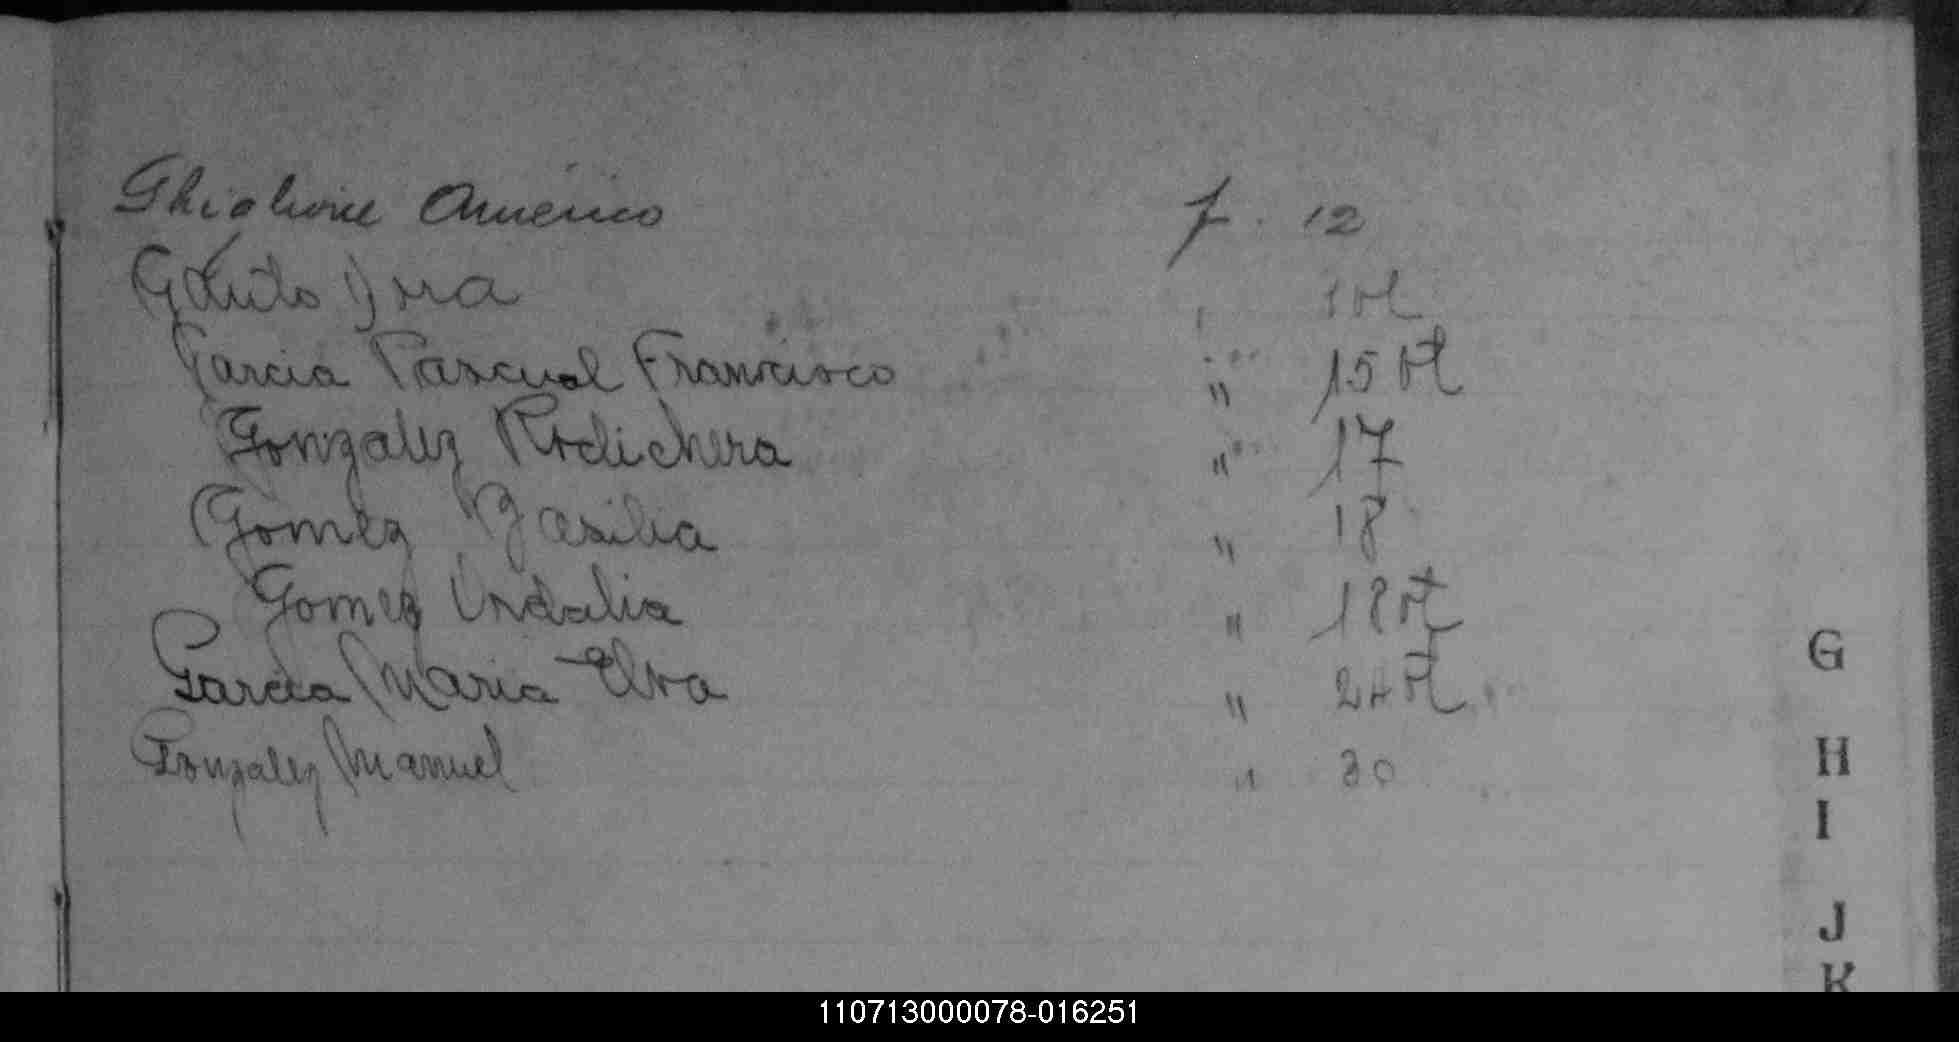 Ghiglione Américo f. 12
Gauto
Garcia Pascual Francisco " 15 vt
Gonzalez Rodichera " 17
Gomez Basilia " 18
Gomez Indalia " 18 vt
Garcia Maria Elva " 24 vt
Gonzalez Manuel " 30
G
H
I
J
K
110713000078-016251